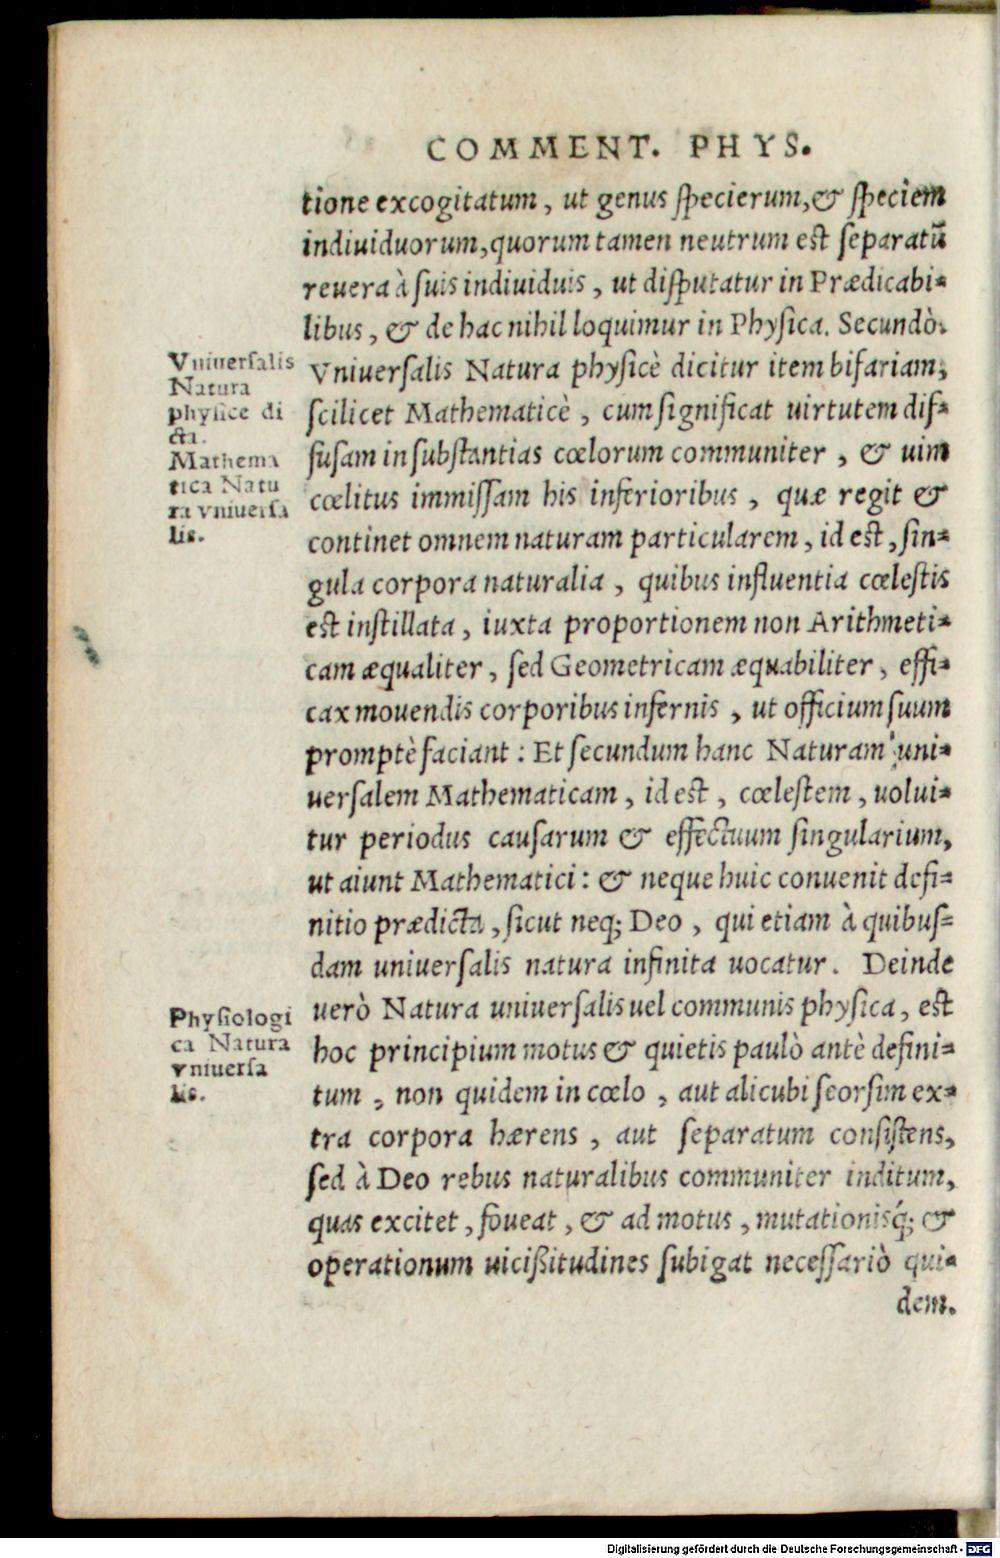 COMMENT. PHYS.
tione excogitatum, ut genus specierum, & speciem
indiuiduorum, quorum tamen neutrum est separatũ
reuera à suis indiuiduis, ut disputatur in Prædicabi-
libus, & de hac nihil loquimur in Physica. Secundò.
Vniuersalis Natura physicè dicitur item bifariam,
scilicet Mathematicè, cum significat uirtutem dif-
fusam in substantias cœlorum communiter, & uim
cœlitus immissam his inferioribus, quæ regit &
continet omnem naturam particularem, id est, sin-
gula corpora naturalia, quibus influentia cœlestis
est instillata, iuxta proportionem non Arithmeti-
cam æqualiter, sed Geometricam æquabiliter, effi-
cax mouendis corporibus infernis, ut officium suum
promptè faciant: Et secundum hanc Naturam uni-
uersalem Mathematicam, id est, cœlestem, uolui-
tur periodus causarum & effectuum singularium,
ut aiunt Mathematici: & neque huic conuenit defi-
nitio prædicta, sicut neq; Deo, qui etiam à quibus-
dam uniuersalis natura infinita uocatur. Deinde
uerò Natura uniuersalis uel communis physica, est
hoc principium motus & quietis paulò antè defini-
tum, non quidem in cœlo, aut alicubi seorsim ex-
tra corpora hærens, aut separatum consistens,
sed à Deo rebus naturalibus communiter inditum,
quas excitet, foueat, & ad motus, mutationisq́; &
operationum uicißitudines subigat necessariò qui-
dem.
Vniuersalis
Natura
physice di
cta.
Mathema
tica Natu
ra vniuersa
lis.
Physiologi
ca Natura
vniuersa
lis.
Digitalisierung gefördert durch die Deutsche Forschungsgemeinschaft - DFG